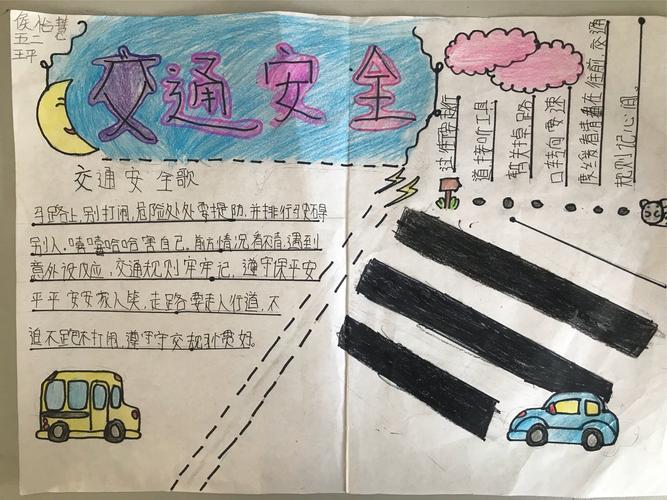 侯怡慧
五二
王平
交通安全
交通安全歌
马路上,别打闹,危险处处要提防,并排行
别人,嘻嘻哈哈害自己,前方情况看不清,遇到
意外没反应,交通规则牢牢记,遵守保平安
平平安安人人笑,走路要走人行道,不
追不跑不打闹,遵守交规
过街要走行
道接听工具
路
口转向要速
度缓看清在往前交通
规则记心间。